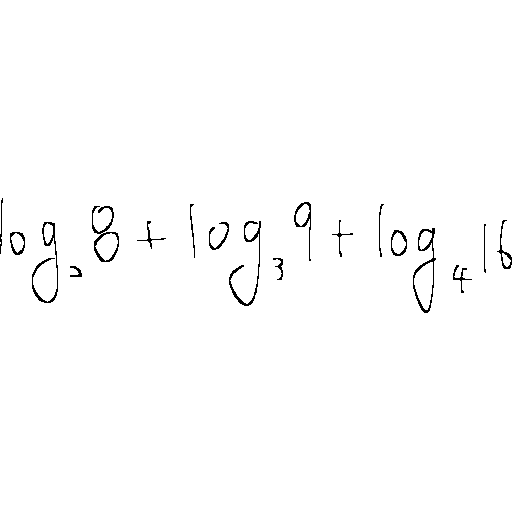 log₂8+log₃9+log₄16